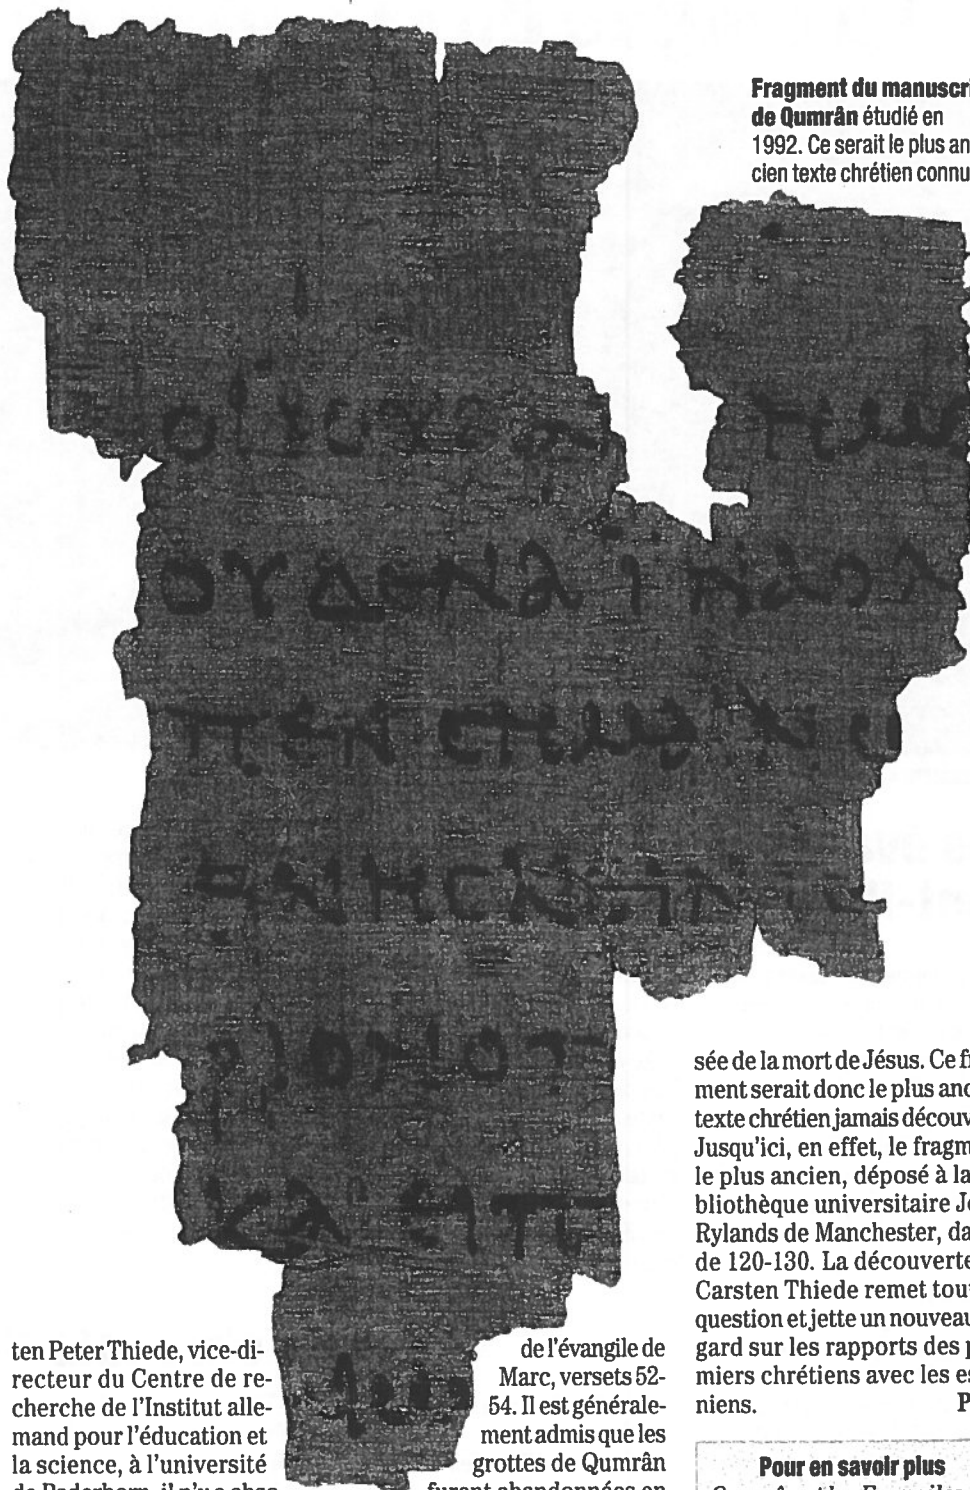 Fragment du manuscri
de Qumrân étudié en
1992. Ce serait le plus an-
cien texte chrétien connu
ΟΥΔΕΝΑΪΝΑΟΛ
ΠΕΝϹΗΜΑΙΝΩ
ΘΝΗϹΚΕΙΝΙϹ
ΡΙΟΝΟΠ
ΚΑΙΕΙΠ
ten Peter Thiede, vice-di-
recteur du Centre de re-
cherche de l'Institut alle-
mand pour l'éducation et
la science, à l'université
de Paderborn, il n'y a
de l'évangile de
Marc, versets 52-
54. Il est générale-
ment admis que les
grottes de Qumrân
furent abandonnées en
sée de la mort de Jésus. Ce
ment serait donc le plus anc
texte chrétien jamais découv
Jusqu'ici, en effet, le fragm
le plus ancien, déposé à la
bliothèque universitaire Jo
Rylands de Manchester, da
de 120-130. La découverte
Carsten Thiede remet tout
question et jette un nouveau
gard sur les rapports des p
miers chrétiens avec les es
niens. P
Pour en savoir plus